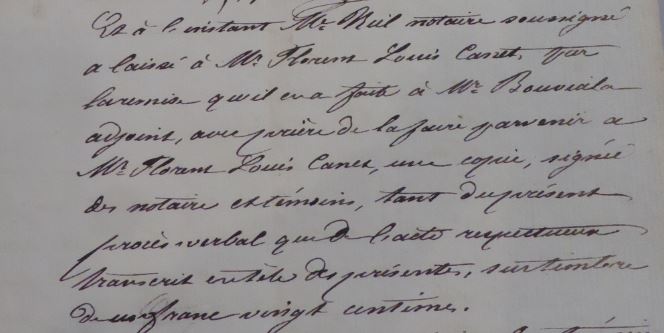 Et à l'instant Me Riel notaire soussigné
a laissé à Mr Florent Louis Canet, par
la remise qu'il en a faite à Mr Bouviala
adjoint, avec prière de la faire parvenir a
Mr Florent Louis Canet, une copie, signée
des notaire et témoins, tant du présent
procès verbal que de l'acte respectueux
transcrit en tête des présentes, sur timbre
de un franc vingt centimes.